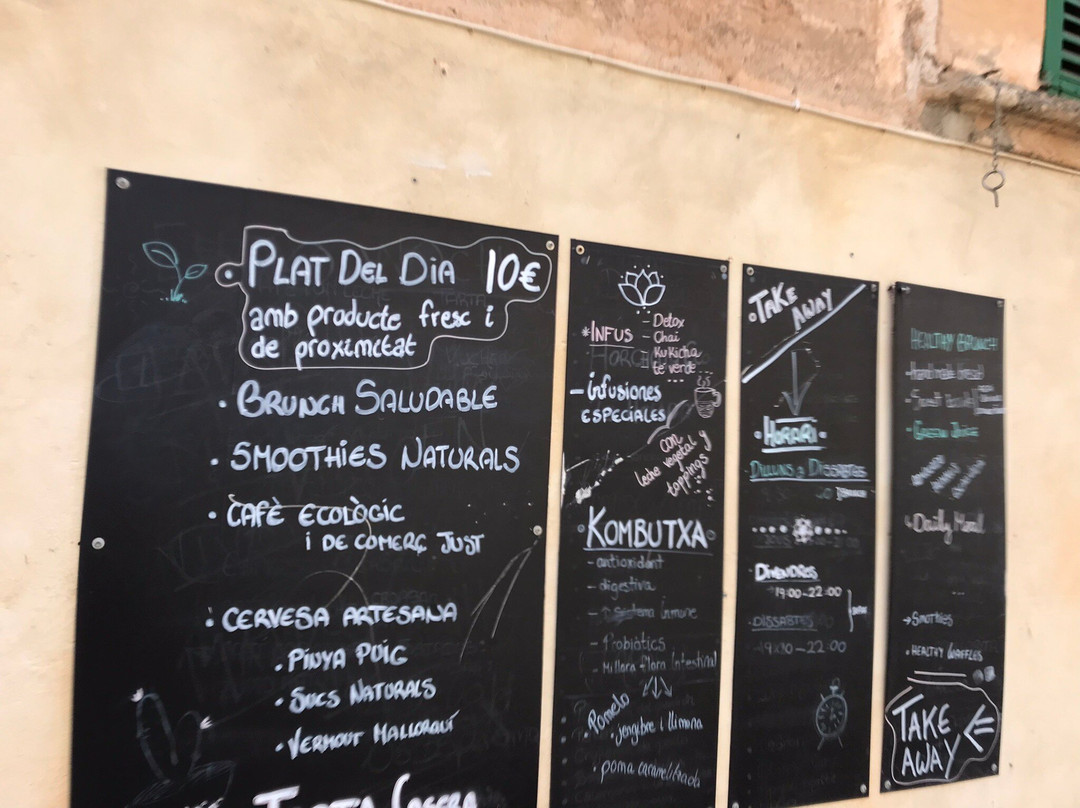 PLAT DEL DIA 10€
amb producte fresc i
de proximitat
• BRUNCH SALUDABLE
• SMOOTHIES NATURALS
• CAFÈ ECOLÒGIC
i DE COMERÇ JUST
• CERVESA ARTESANA
• PINYA PUIG
• SUCS NATURALS
• VERMOUT MALLORQUÍ
TARTA CASERA
*INFUS
- Detox
- Chai
- Kukicha
té verde
- infusiones
ESPECIALES
con
leche vegetal y
toppings
• KOMBUTXA
- antioxidant
- digestiva
- Sistema inmune
- Probiòtics
- Millora flora intestinal
Pomelo
• jengibre i llimona
• poma caramelitzada
• TAKE
AWAY
• HORARI •
DILLUNS a DISSABTES
• DIVENDRES
19:00-22:00
• DISSABTES
19:30-22:00
HEALTHY BRUNCH
- handmade bread
• GREEN JUICE
• Daily Meal
→ Smothies
• HEALTHY WAFFLES
TAKE
AWAY